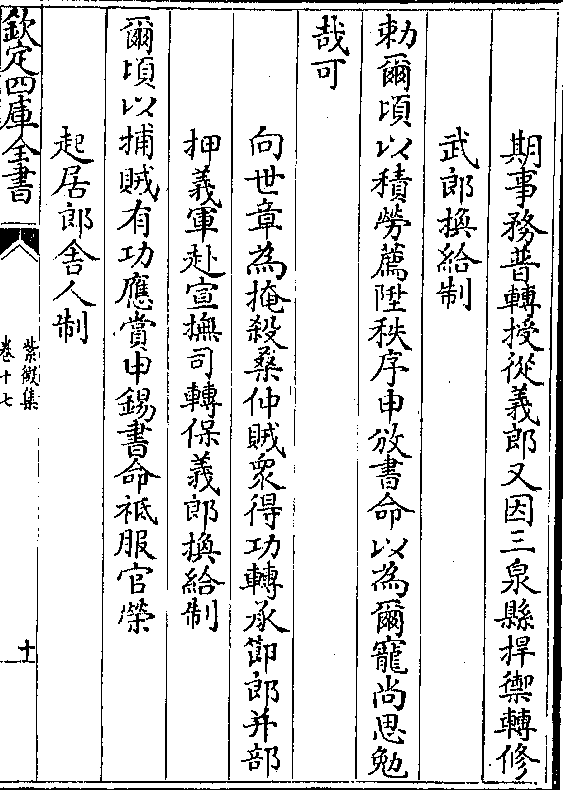 期事務普轉授從義郎又因三泉縣捍禦轉修
武郎換給制
勅爾頃以積勞薦陞秩序申放書命以為爾寵尚思勉
哉可
向世章為掩殺桑仲賊衆得功轉承節郎并部
押義軍赴宣撫司轉保義郎換給制
爾頃以捕賊有功應賞申錫書命祗服官榮
起居郎舍人制
欽定四庫全書
紫微集
卷十七
十